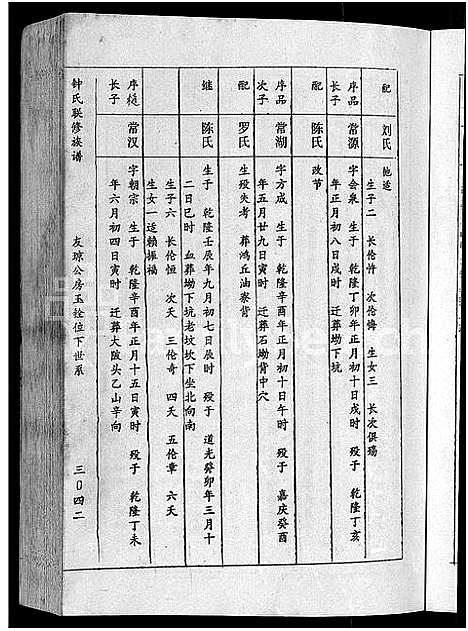 配 刘氏 随适
生子二 长伦忏 次伦悔 生女三 长次俱殇
序品长子 常源 字会泉 生于 乾隆丁卯年正月初十日戌时 殁于 乾隆丁亥
年正月初八日戌时 迁葬坳下坑
配 陈氏 改节
序品次子 常湖 字方成 生于 乾隆辛酉年正月初十日午时 殁于 嘉庆癸酉
年五月廿九日寅时 迁葬石坳背中穴
配 罗氏 生殁失考 葬鸿丘油寮背
继 陈氏 生于 乾隆壬辰年九月初七日辰时 殁于 道光癸卯年三月十
二日巳时 血葬坳下坑老坟坎下坐北向南
生子六 长伦恒 次夭 三伦奇 四夭 五伦章 六夭
生女一适赖振福
序 长子 常汉 字朝宗 生于 乾隆辛酉年正月十五日寅时 殁于 乾隆丁未
年六月初四日寅时 迁葬大陂头乙山辛向
钟氏联修族谱 友琼公房玉拴位下世系 三〇四二